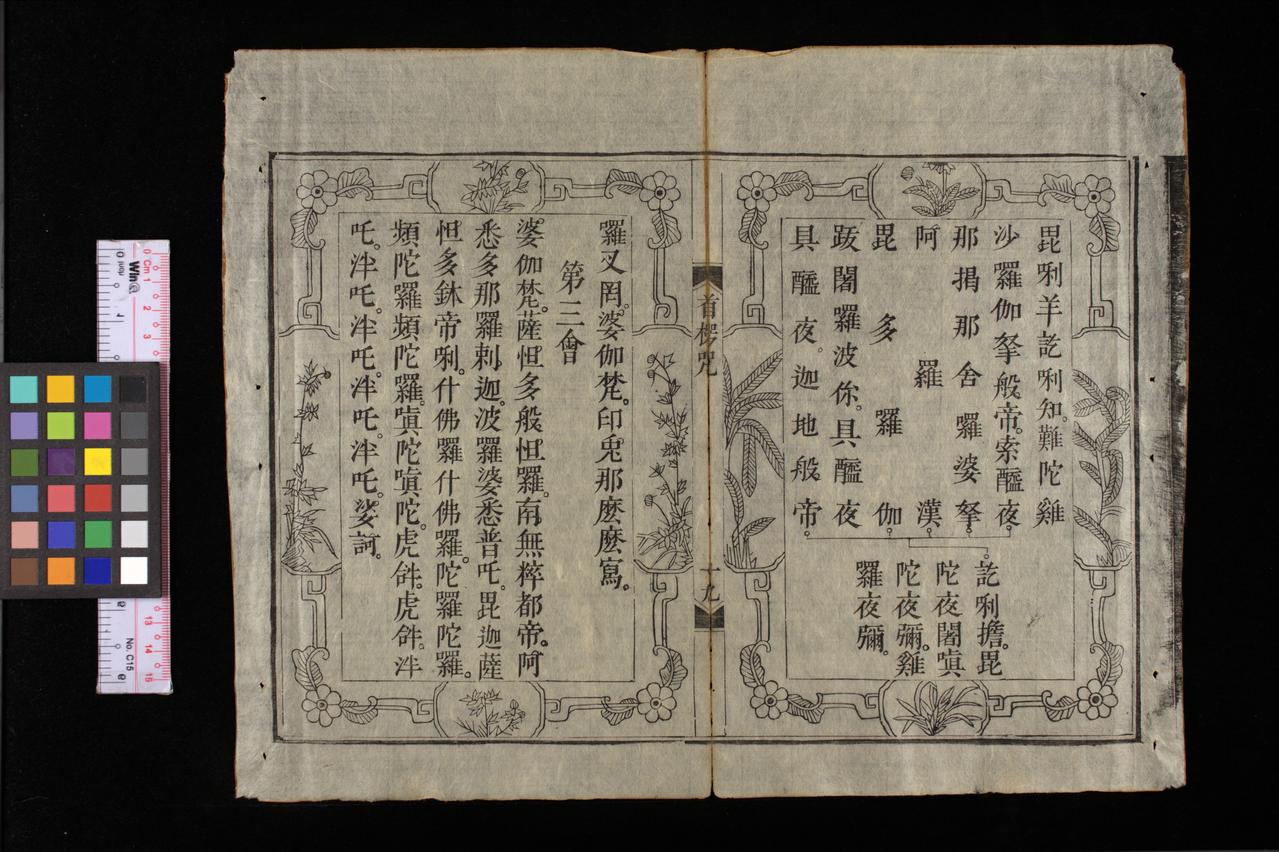 毘唎羊訖唎知。難陀雞
沙囉伽拏般帝。索醯夜。
那揭那舍囉婆拏
阿囉漢
毘多囉伽
跋闍囉波你。具醯夜
具醯夜。迦地般帝
訖唎擔。毘
陀夜闍嗔
陀夜彌。雞
囉夜彌。
首楞咒
十九
囉叉罔。婆伽梵。印兎那麽麽寫。
第三會
婆伽梵。薩怛多般怛囉。南無粹都帝。阿
悉多那囉剌迦。波囉婆悉普吒。毘迦薩
怛多鉢帝唎。什佛囉什佛囉。陀囉陀囉。
頻陀囉頻陀囉。嗔陀嗔陀。虎𤙖。虎𤙖。泮
吒。泮吒。泮吒。泮吒。泮吒。娑訶。